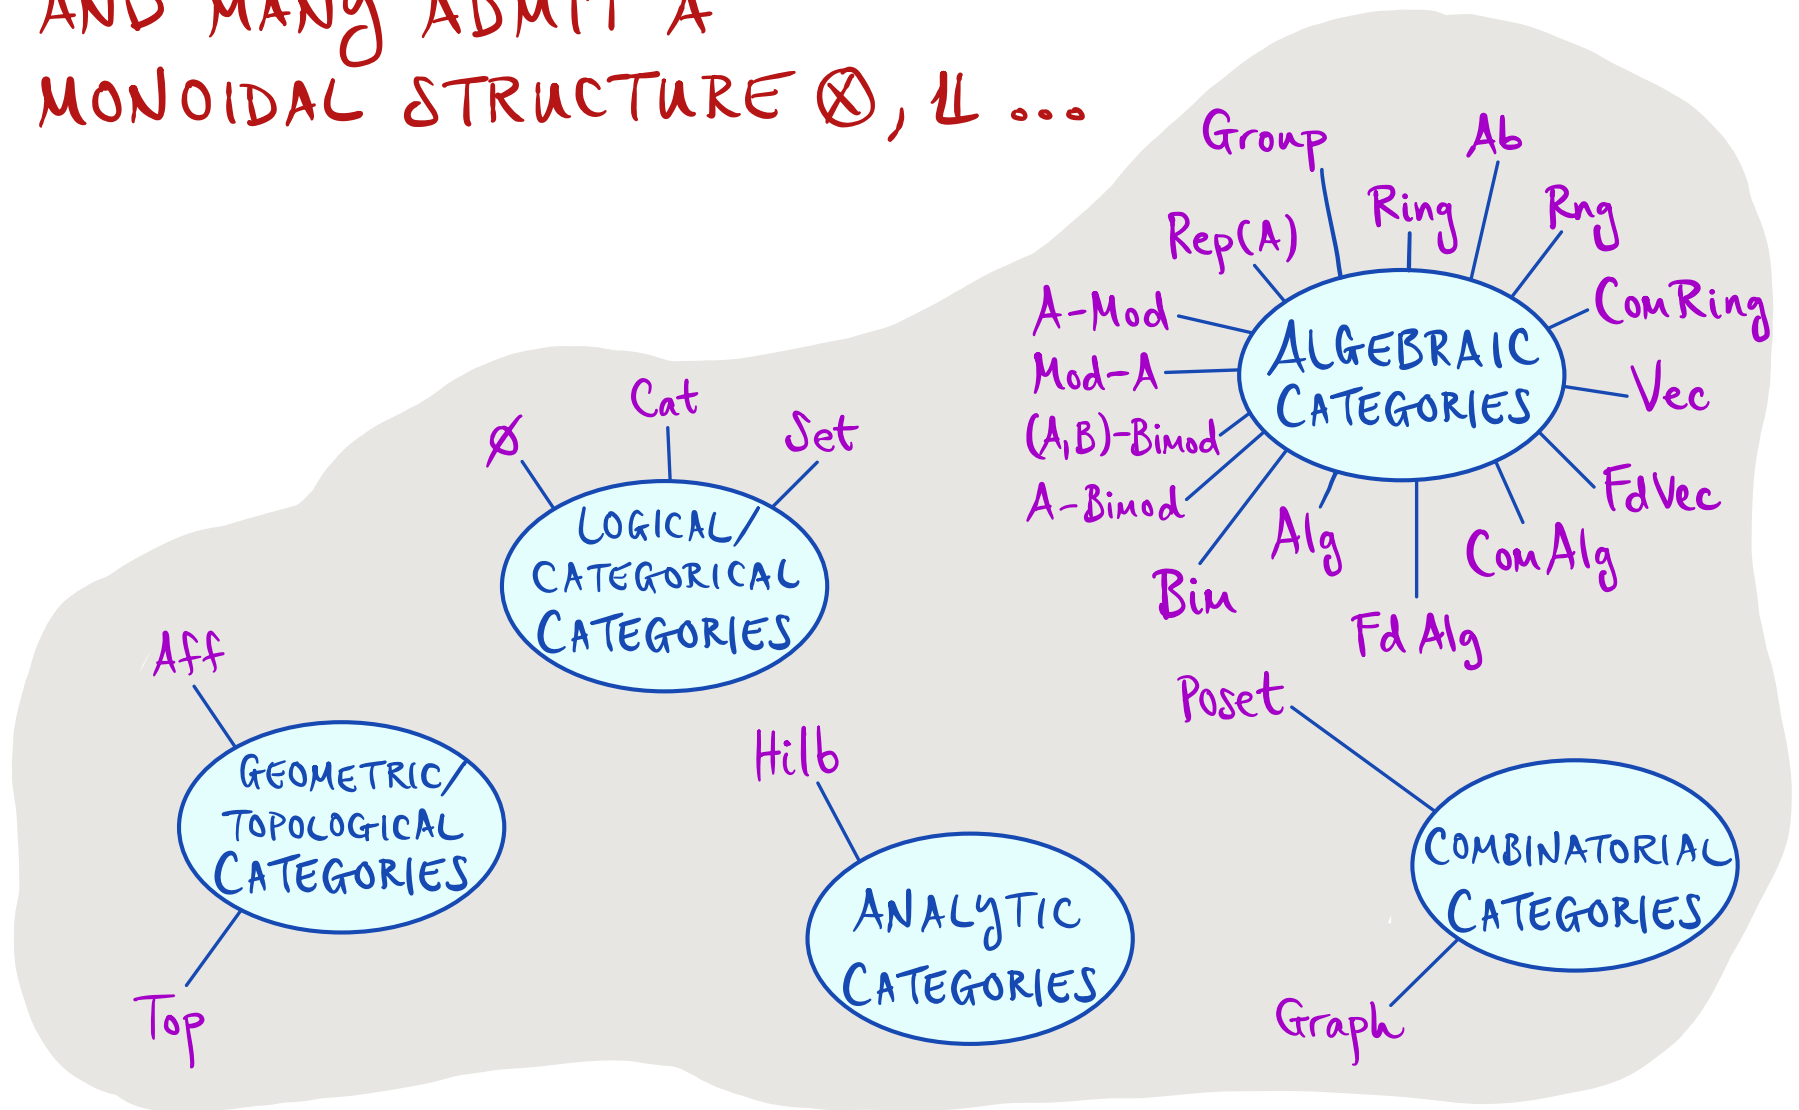 AND MANY ADMIT A
MONOIDAL STRUCTURE ⊗, 𝟙 ...
Group
Ab
Ring
Rng
Rep(A)
A-Mod
ComRing
ALGEBRAIC
CATEGORIES
Mod-A
Vec
(A,B)-Bimod
A-Bimod
FdVec
Alg
ComAlg
Bim
FdAlg
Cat
∅
Set
LOGICAL/
CATEGORICAL
CATEGORIES
Aff
GEOMETRIC/
TOPOLOGICAL
CATEGORIES
Top
Hilb
ANALYTIC
CATEGORIES
Poset
COMBINATORIAL
CATEGORIES
Graph